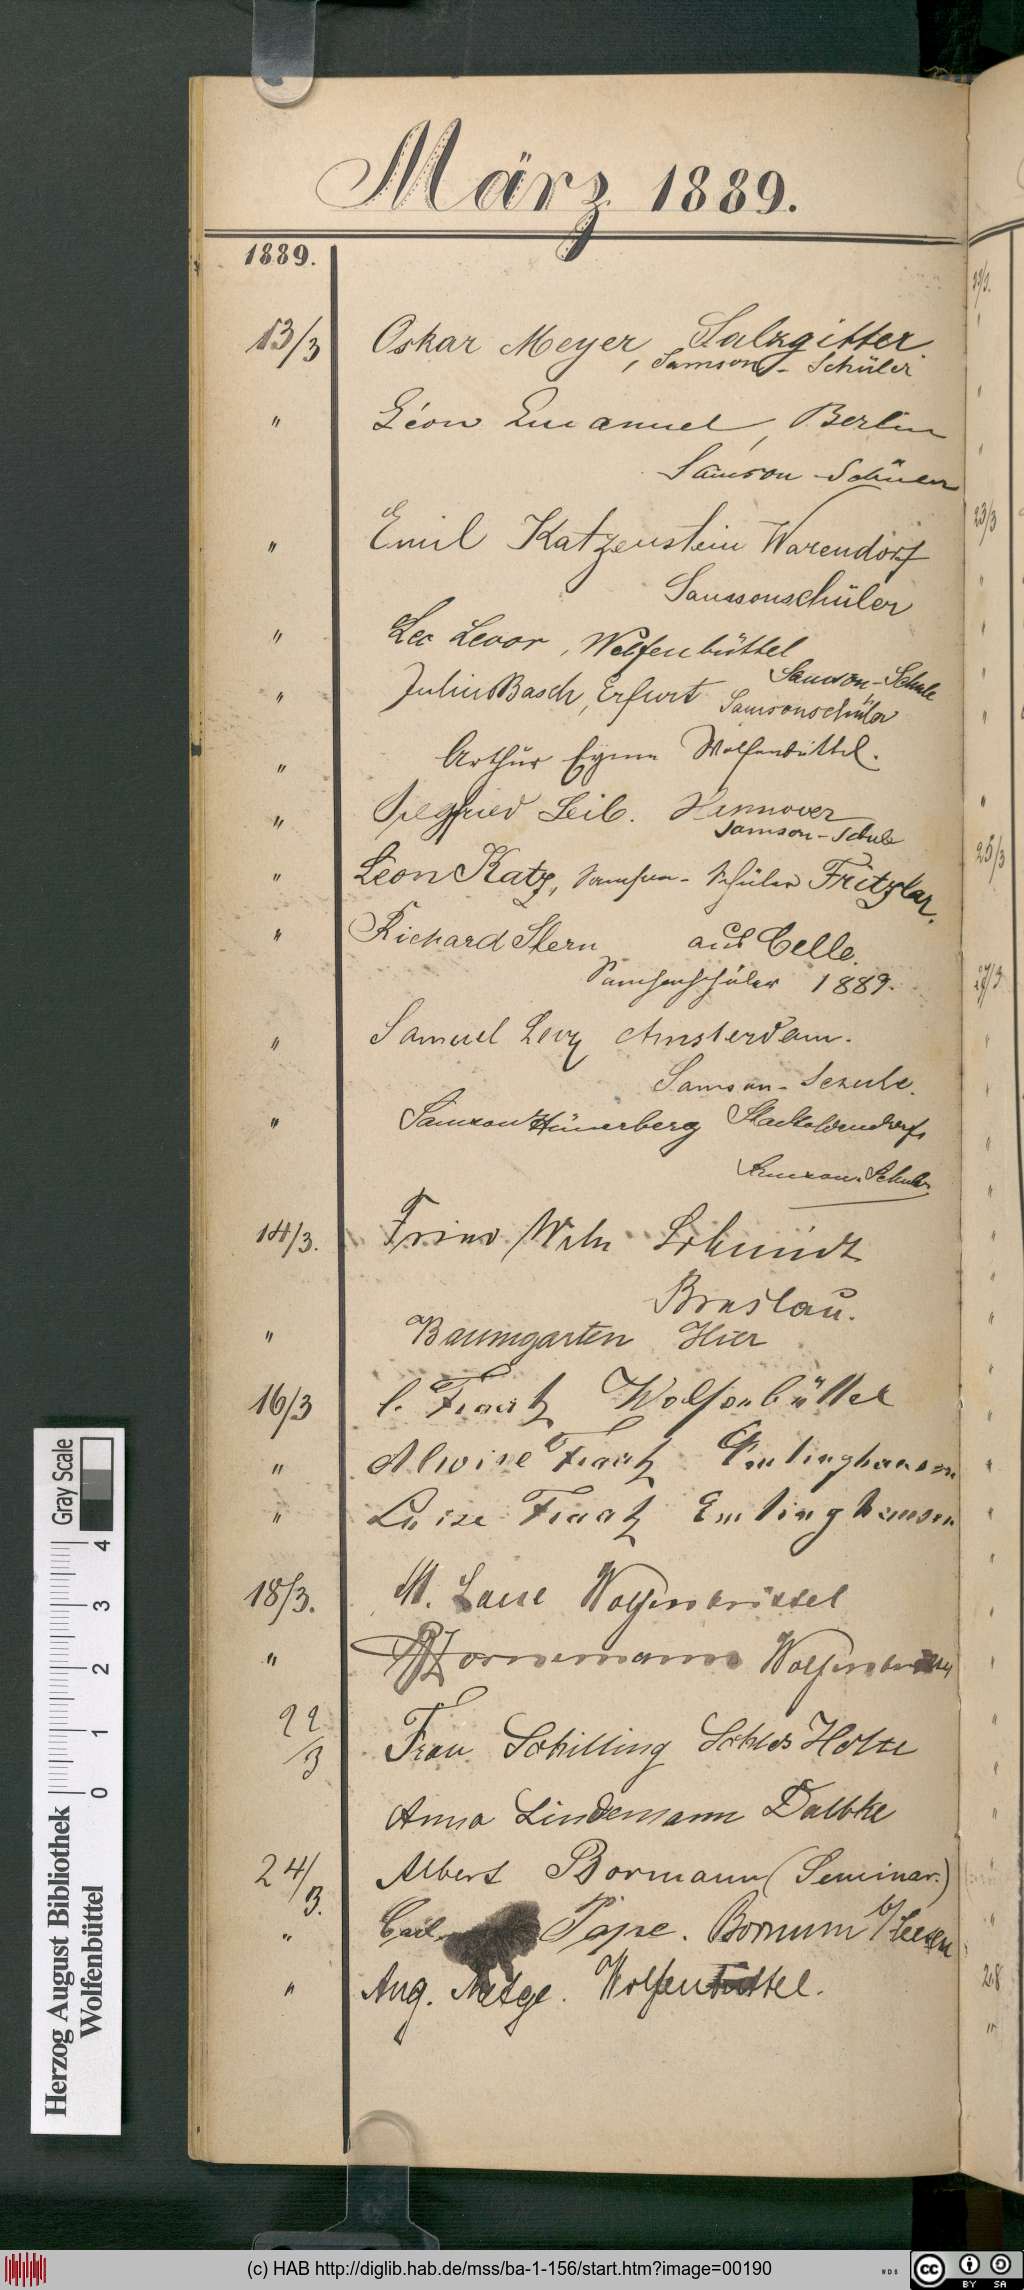 März 1889.
1889.
13/3 Oskar Meyer, Salzgitter
Samson-Schüler
" Léon Emanuel, Berlin
Samson-Schüler
" Emil Katzenstein Warendorf
Samsonschüler
" Leo Levor, Wolfenbüttel
Samson-Schule
" Julius Basch, Erfurt Samsonschüler
" Arthür Wolfenbüttel.
" Siegfried Leib. Hannover
Samson-Schule
" Leon Katz, Samson-Schüler Fritzlar.
" Richard Stern aus Celle.
Samsonschüler 1889.
" Samuel Levy Amsterdam.
Samson-Schule.
" Samson Hünerberg Stadtoldendorf,
Samson-Schule.
14/3. Wilh Schmidt
Breslau.
" Baumgarten Hier
16/3 C. Fraatz Wolfenbüttel
" Alwine Fraatz
" Luise Fraatz
18/3. M. Laue Wolfenbüttel
" Bornemann Wolfenbüttel
22/3 Frau Schilling Schlos Holte
Anna Lindemann Dalbke
24/3. Albert Bormann (Seminar.)
" Carl Pape. Bornum b/Seesen
" Aug. Metge. Wolfenbüttel.
Herzog August Bibliothek
Wolfenbüttel
0 1 2 3 4
Gray Scale
23/3
25/3
27/3
28
(c) HAB http://diglib.hab.de/mss/ba-1-156/start.htm?image=00190
WDB
cc BY SA